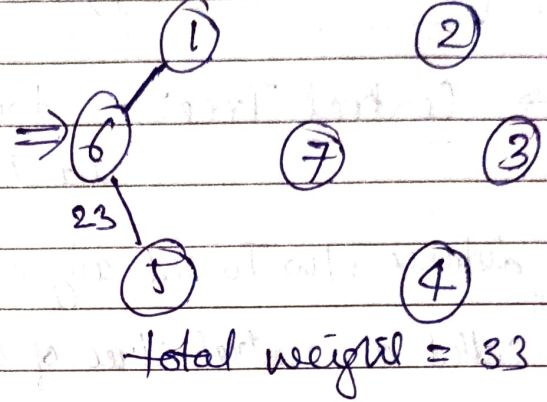 1
2
⇒ 6
7
3
23
5
4
total weight = 33